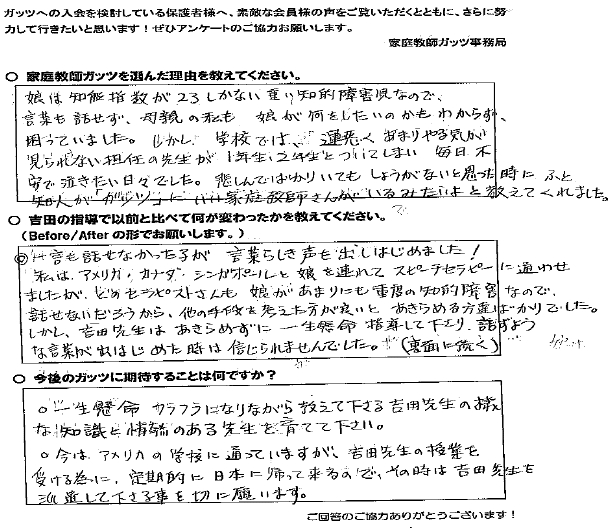 ガッツへの入会を検討している保護者様へ、素敵な会員様の声をご覧いただくとともに、さらに努
力して行きたいと思います！ぜひアンケートのご協力お願いします。
家庭教師ガッツ事務局
○ 家庭教師ガッツを選んだ理由を教えてください。
娘は知能指数が23しかない重い知的障害児なので、
言葉も話せず、母親の私も 娘が何をしたいのかもわからず、
困っていました。しかし、学校では、運悪く あまりやる気が
見られない担任の先生が 1年生、2年生とついてしまい 毎日不
安で泣きたい日々でした。悲しんでばかりいてもしょうがないと思った時に ふと
知人が ガッツ 家庭教師さんがいるみたいよと教えてくれました。
○ 吉田の指導で以前と比べて何が変わったかを教えてください。
(Before/After の形でお願いします。)
◎ 一言も話せなかった子が 言葉らしき声を出しはじめました！
私は、アメリカ・カナダ・シンガポールと 娘を連れて スピーチセラピーに通わせ
ましたが、どのセラピストさんも 娘があまりにも重度の知的障害なので、
話せないだろうから、他の手段を考えた方が良いと あきらめる方達ばかりでした。
しかし、吉田先生は あきらめずに 一生懸命 指導して下さり、話すよう
な言葉が出はじめた時は 信じられませんでした。(裏面に続く)
○ 今後のガッツに期待することは何ですか？
○ 一生懸命 カラフラになりながら 教えて下さる 吉田先生の様
な 知識と情熱のある先生を育てて下さい。
○ 今は アメリカの学校に 通っていますが、吉田先生の授業を
受ける為に、定期的に 日本に帰って来るので、その時は 吉田先生を
派遣して下さる事を切に願います。
ご回答のご協力ありがとうございます！